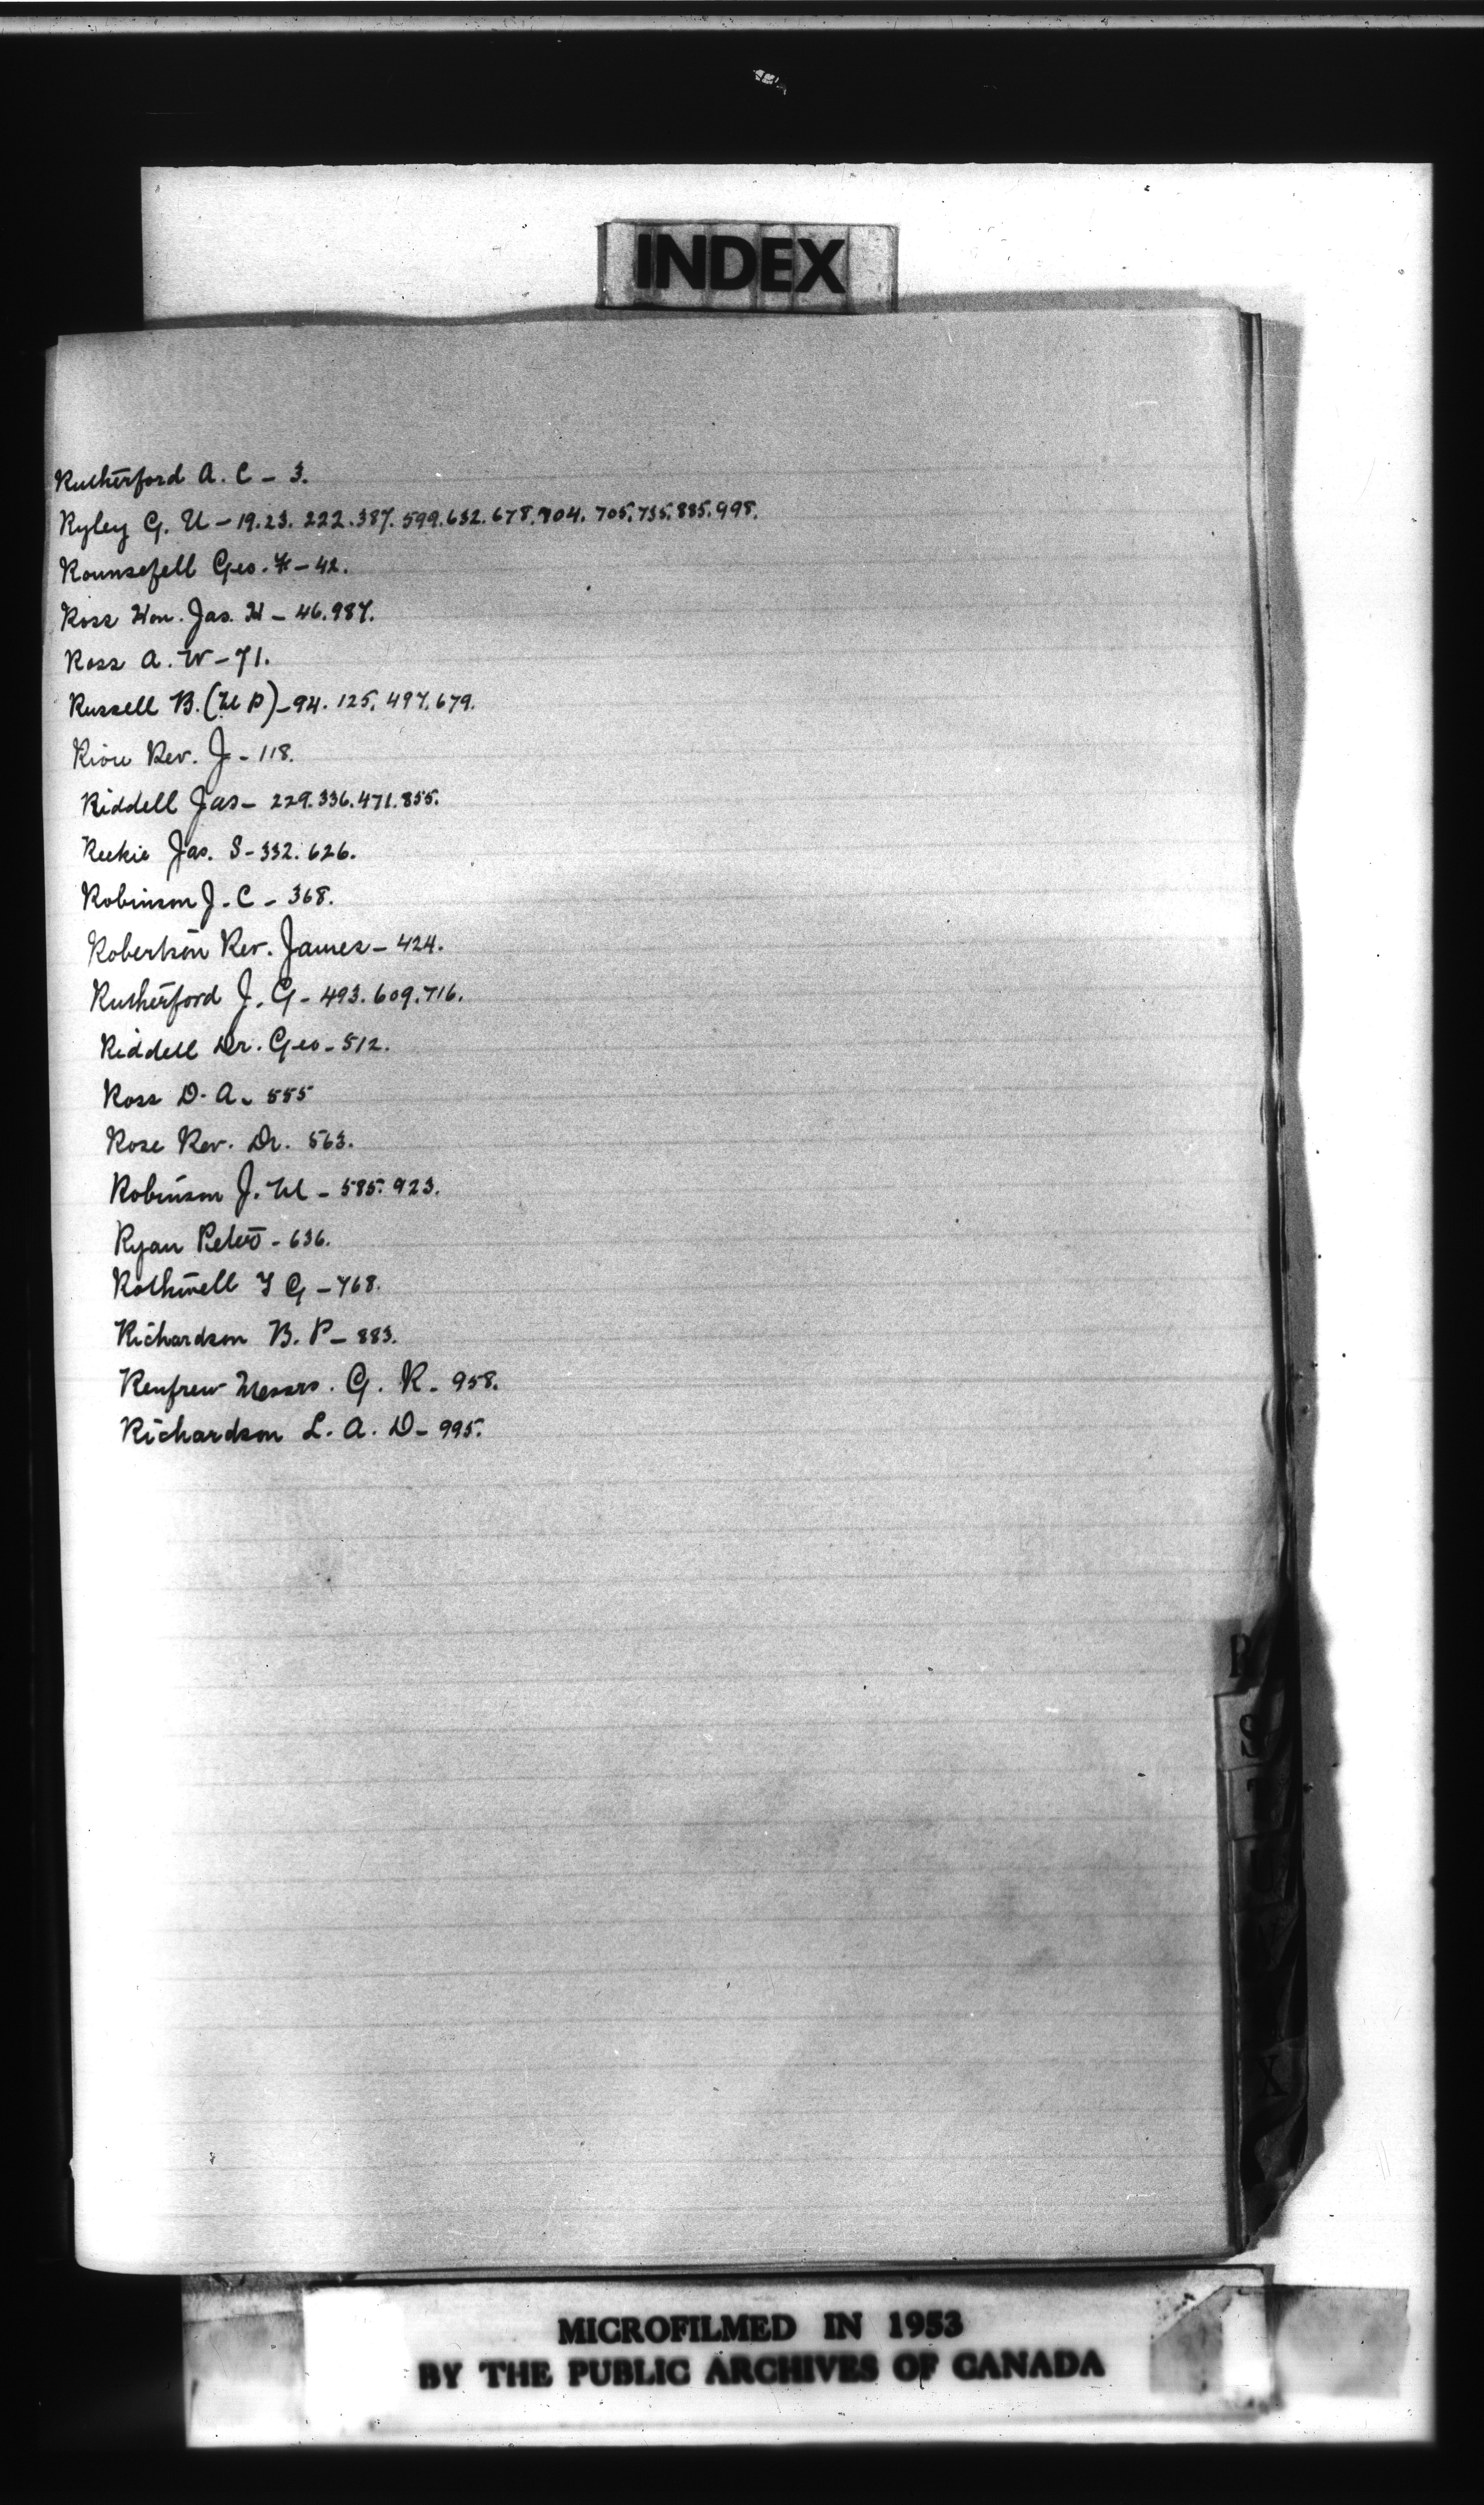 INDEX
Rutherford A. C - 3.
Ryley G. U - 19.23. 222.387. 599.632.678.704. 705.735.885.998.
Rounsefell Geo. F - 42.
Ross Hon. Jas. H - 46.987.
Ross A. W - 71.
Russell B. (M P) - 94. 125. 497. 679.
Riou Rev. J - 118.
Riddell Jas - 229.336.471.855.
Reekie Jas. S - 332. 626.
Robinson J. C - 368.
Robertson Rev. James - 424.
Rutherford J. G - 493. 609. 716.
Riddell Dr. Geo - 512.
Ross D. A - 555
Rose Rev. Dr. 563.
Robinson J. M - 585. 923.
Ryan Peter - 636.
Rothwell T G - 768.
Richardson B. P - 883.
Renfrew Messrs. G. R - 958.
Richardson L. A. D - 995.
R
S
T
MICROFILMED IN 1953
BY THE PUBLIC ARCHIVES OF CANADA